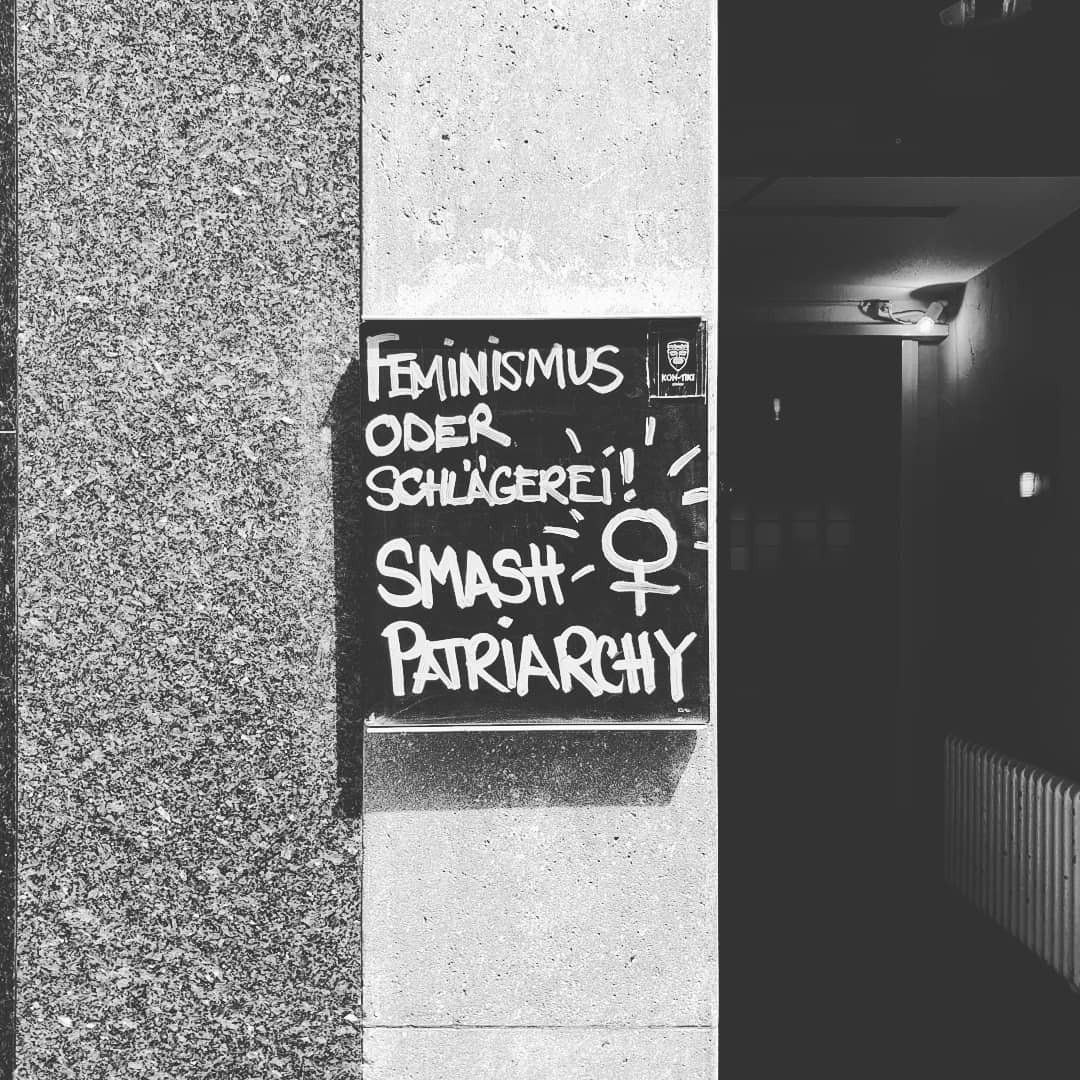 FEMINISMUS
ODER
SCHLÄGEREI!
SMASH
PATRIARCHY
KON-TIKI